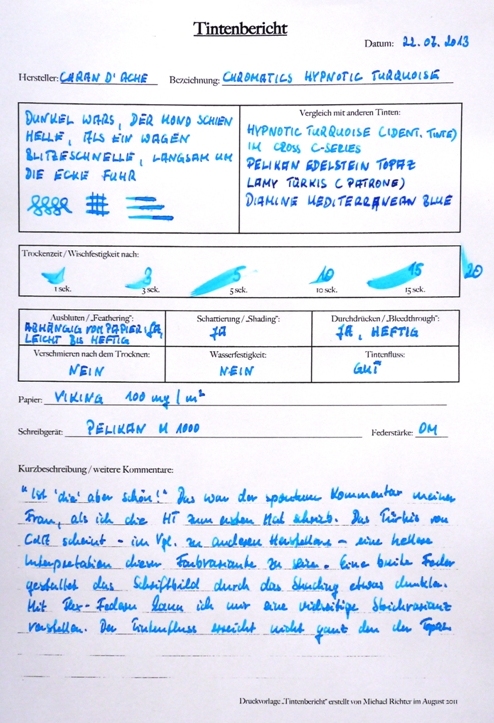 Tintenbericht
Datum: 22.07.2013
Hersteller: CARAN D'ACHE Bezeichnung: CHROMATICS HYPNOTIC TURQUOISE
DUNKEL WARS, DER MOND SCHIEN
HELLE, ALS EIN WAGEN
BLITZESCHNELLE, LANGSAM UM
DIE ECKE FUHR
Vergleich mit anderen Tinten:
HYPNOTIC TURQUOISE (IDENT. TINTE)
IM CROSS C-SERIES
PELIKAN EDELSTEIN TOPAZ
LAMY TÜRKIS (PATRONE)
DIAMINE MEDITERRANEAN BLUE
Trockenzeit / Wischfestigkeit nach:
1 3 5 10 15 20
1 sek. 3 sek. 5 sek. 10 sek. 15 sek.
Ausbluten / „Feathering“: Schattierung / „Shading“: Durchdrücken / „Bleedthrough“:
ABHÄNGIG VOM PAPIER: JA, JA JA, HEFTIG
LEICHT BIS HEFTIG
Verschmieren nach dem Trocknen: Wasserfestigkeit: Tintenfluss:
NEIN NEIN GUT
Papier: VIKING 100 mg/m²
Schreibgerät: PELIKAN M 1000 Federstärke: OM
Kurzbeschreibung / weitere Kommentare:
"Ist 'die' aber schön!" Das war der spontane Kommentar meiner
Frau, als ich die HT zum ersten Mal schrieb. Das Türkis von
CdA scheint - im Vgl. zu anderen Herstellern - eine hellere
Interpretation dieser Farbvariante zu sein. Eine breite Feder
gestaltet das Schriftbild durch das Shading etwas dunkler.
Mit Flex-Federn kann ich mir eine vielseitige Strichvarianz
vorstellen. Der Tintenfluss erreicht nicht ganz den der Topaz
Druckvorlage „Tintenbericht“ erstellt von Michael Richter im August 2011